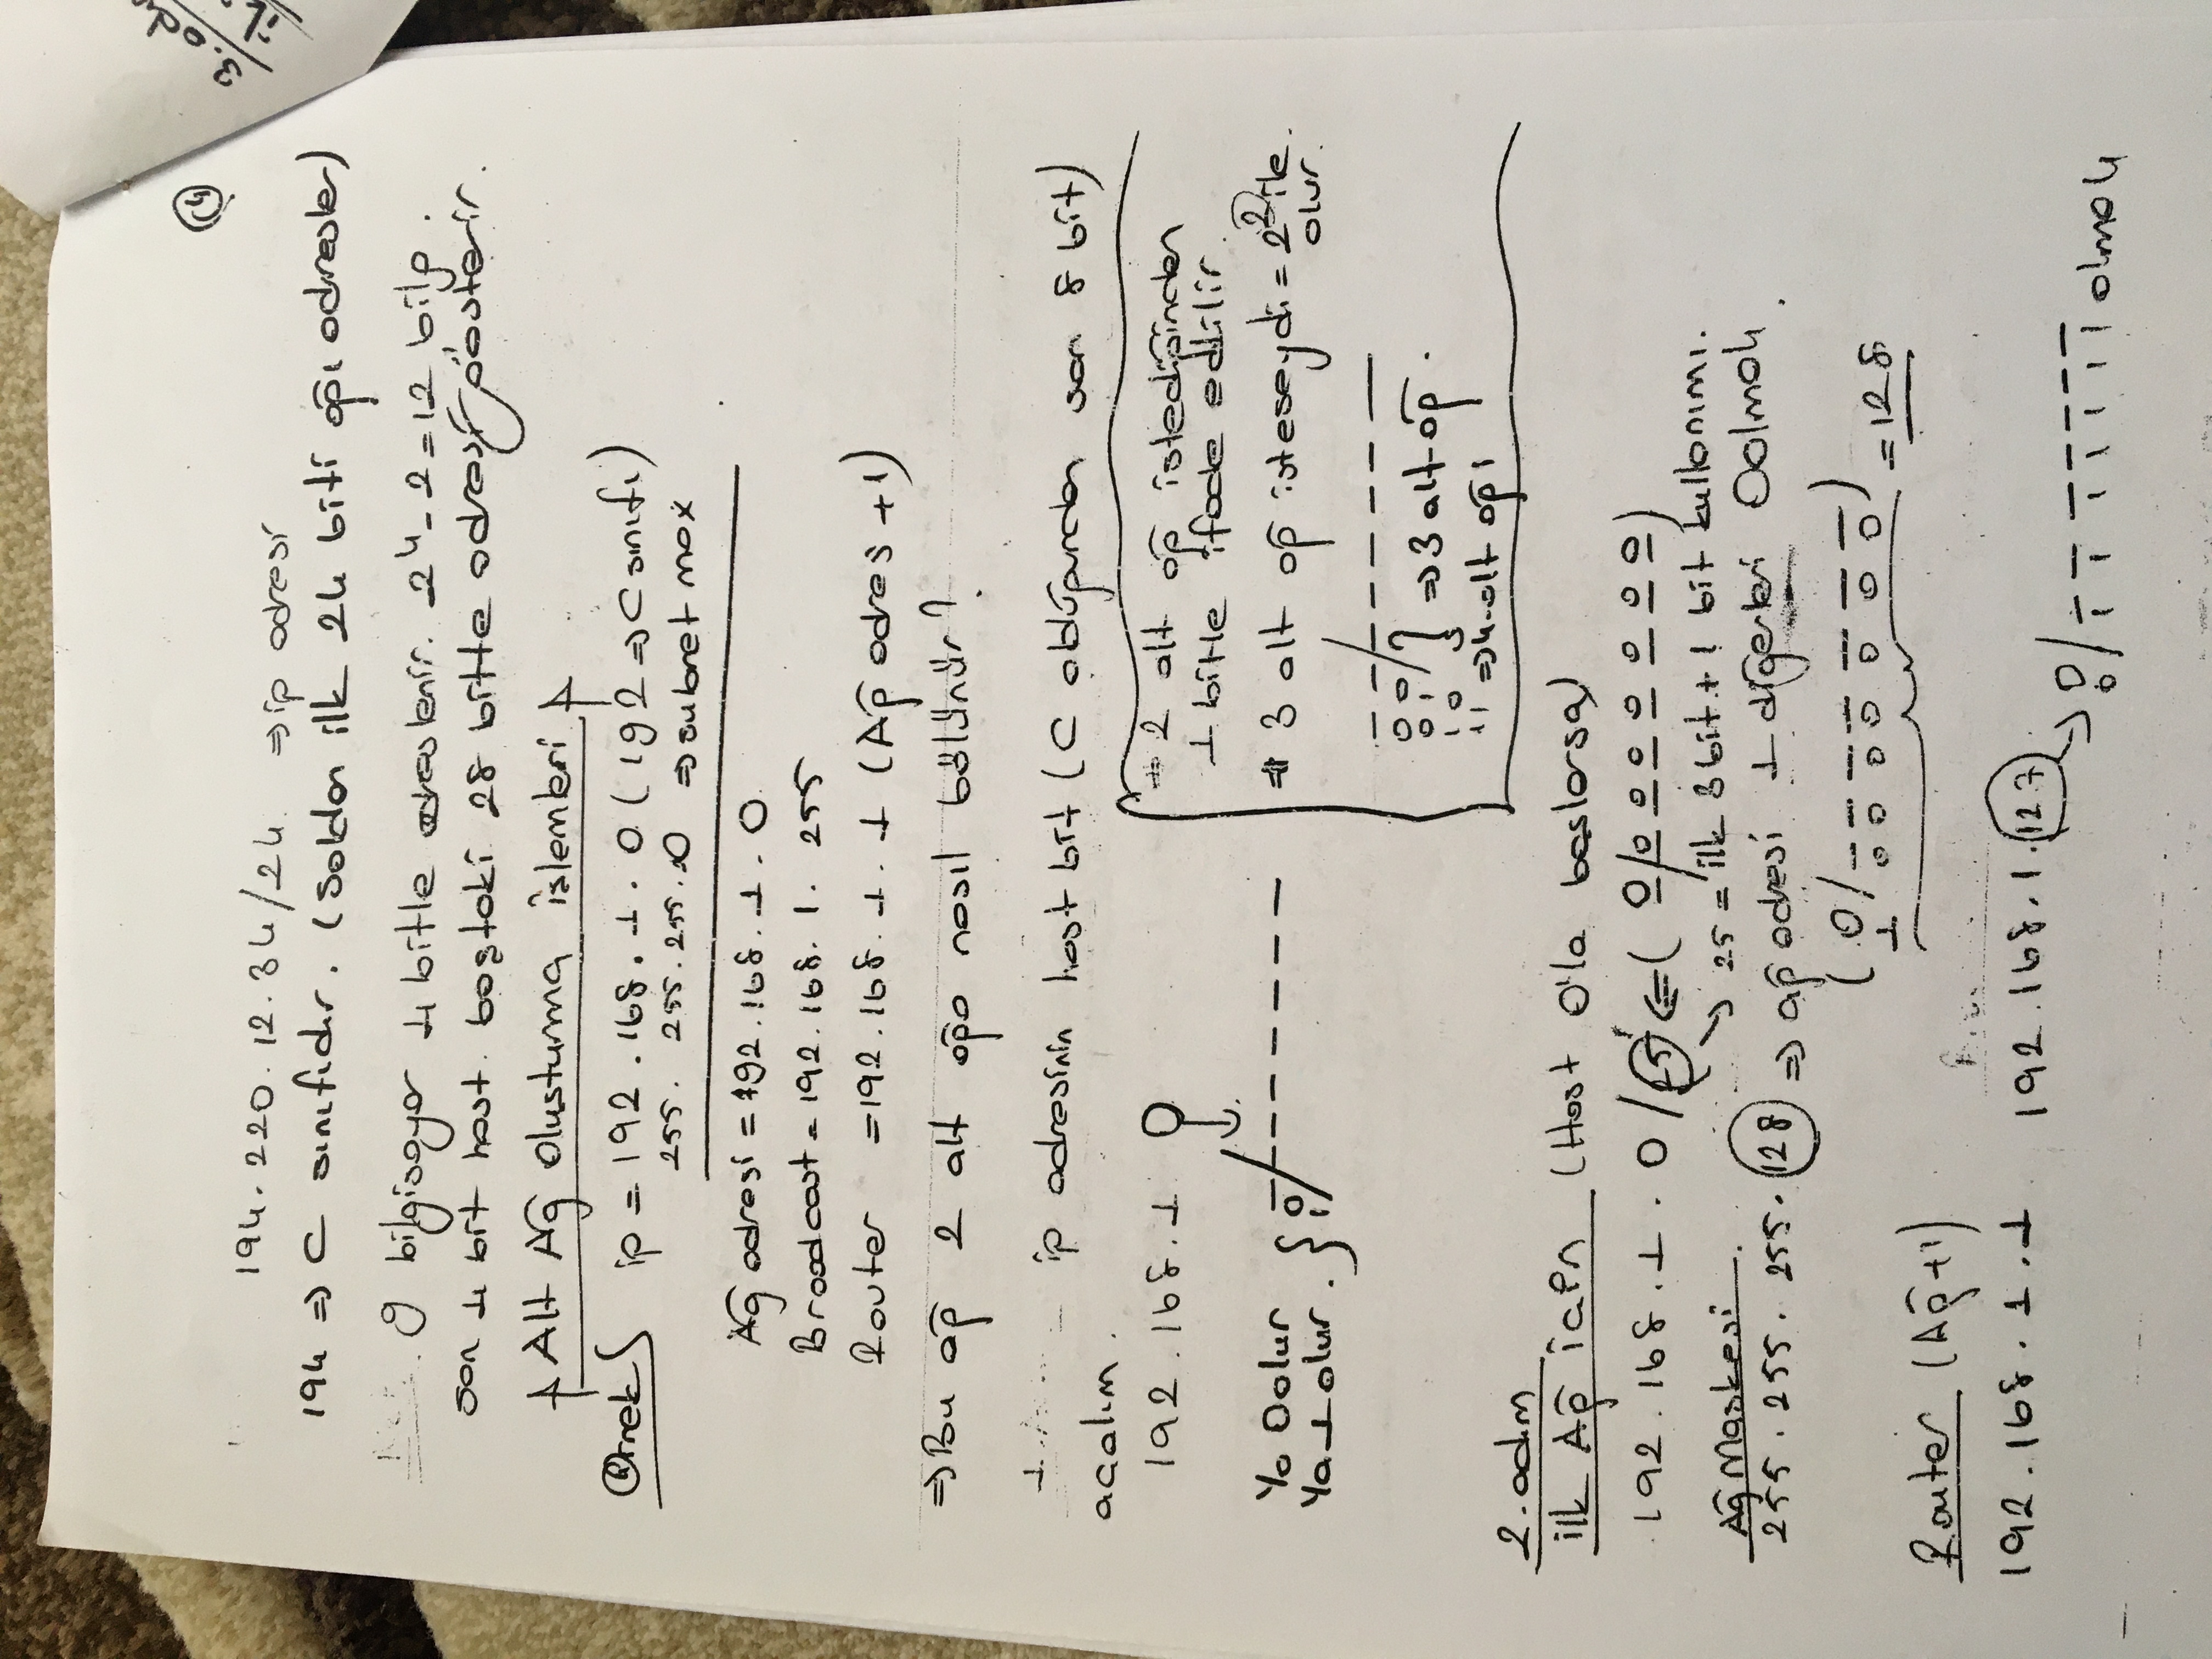 4
3. odı
194.220.12.34/24 ⇒ ip adresi
194 ⇒ C sınıfıdır. (Soldan ilk 24 biti ağı adresler)
9 bilgisayar 4 bitle adreslenir. 2⁴-2=12 bilg.
son 4 bit host. baştaki 28 bitte adresi gösterir.
Alt Ağ Oluşturma işlemleri
Örnek ip = 192.168.1.0 (192 ⇒ C sınıfı)
255.255.255.0 ⇒ subnet max
Ağ adresi = 192.168.1.0
Broadcast = 192.168.1.255
Router = 192.168.1.1 (Ağ adres +1)
⇒ Bu ağ 2 alt ağa nasıl bölünür?
ip adresinin host bit (C olduğundan son 8 bit)
açalım.
192.168.1 0
Ya 0 olur
Ya 1 olur.
} 0 / _ _ _ _ _ _ _
1
# 2 alt ağ istediğinden
1 bitle ifade edilir.
# 3 alt ağ isteseydi = 2² ile
olur.
_ _ / _ _ _ _ _ _
0 0
0 1
1 0 } ⇒ 3 alt ağ.
11 ⇒ 4. alt ağı
2. adım
ilk Ağ için (Host 0'la başlarsa)
192.168.1.0/25 ⇐ (0/0 0 0 0 0 0 0)
25 = ilk 3 bit + 1 bit kullanımı.
Ağ Maskesi
255.255.255.128 ⇒ ağ adresi 1 diğerleri 0 olmalı.
(0/_ _ _ _ _ _ _)
1 0 0 0 0 0 0 0 = 128
Router (Ağ+1)
192.168.1.1 192.168.1.127
→ 0/_ _ _ _ _ _ _
0 1 1 1 1 1 1 1 olmalı